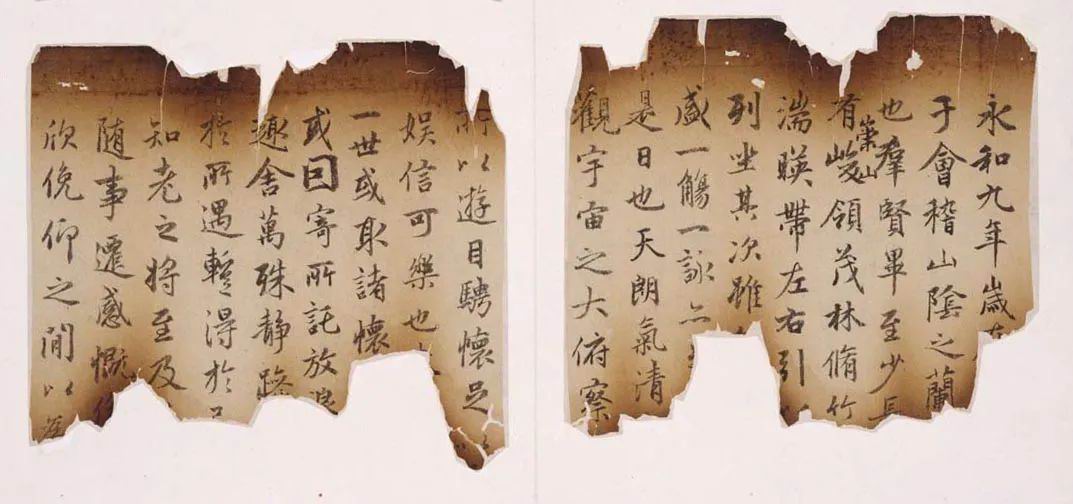 永和九年歲在
于會稽山陰之蘭
也羣賢畢至少長
有崇山峻領茂林脩竹
湍暎帶左右引以
列坐其次雖
盛一觴一詠亦
是日也天朗氣清
觀宇宙之大俯察
所以遊目騁懷足以
娛信可樂也
一世或取諸懷
或因寄所託放浪
趣舍萬殊靜躁
於所遇蹔得於
知老之將至及
隨事遷感慨係
欣俛仰之閒以為